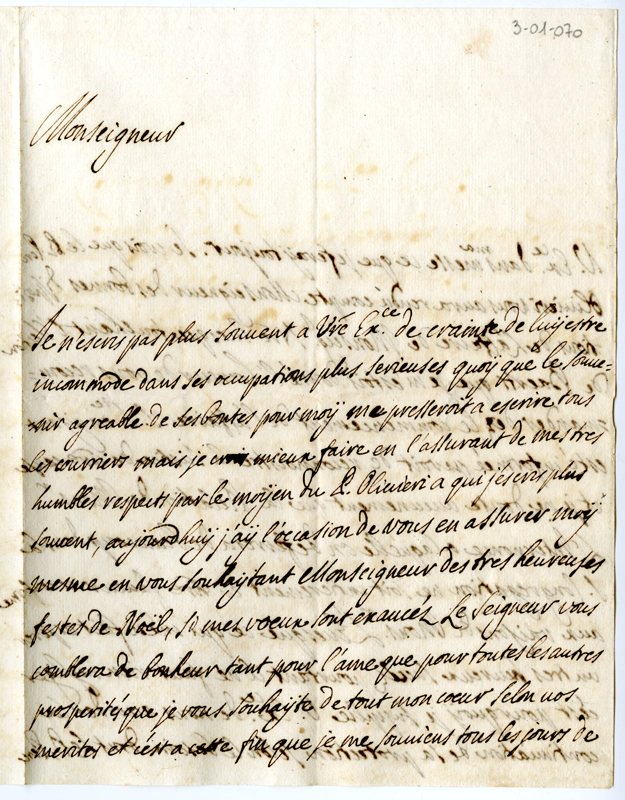 3-01-070
Monseigneur
Je n'escris pas plus souvent a Vre Ex.ce de crainte de luy estre
incommode dans ses occupations plus serieuses quoy que le souve=
nir agreable de ses bontes pour moy me presseroit a escrire tous
les courriers mais je crois mieux faire en l'assurant de mes tres
humbles respects par le moyen du P. Olivieri a qui j'escris plus
souvent, aujourdhuy j'ay l'occasion de vous en assurer moy
mesme en vous souhaytant Monseigneur des tres heureuses
festes de Noël, si mes voeux sont exaucéz Le Seigneur vous
comblera de bonheur tant pour l'ame que pour toutes les autres
prosperité que je vous souhayte de tout mon coeur selon vos
merites et c'est a cette fin que je me souviens tous les jours de